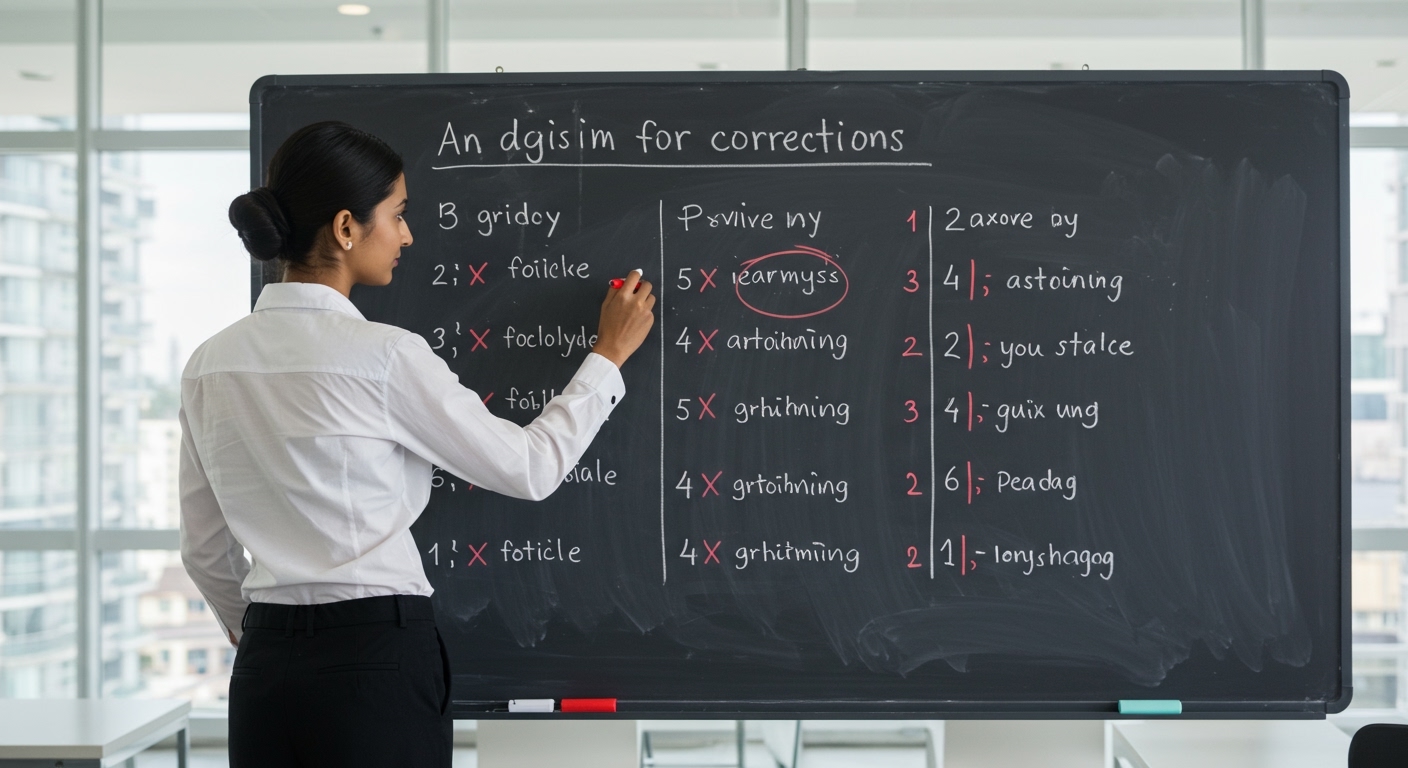 An dgisim for corrections
B gridcy
2; X foiicke
3; X foclolyde
X foibl
5, iale
1; X foticle
Psvive ny
5 X iearmyss
4 X artoihning
5 X grhihning
4 X grtoihning
4 X grhitming
1 2axore ay
3 4|; astoining
2 2|; you stalce
3 4|;- guix ung
2 6|;- Peadag
2 1|;- lonyshagog